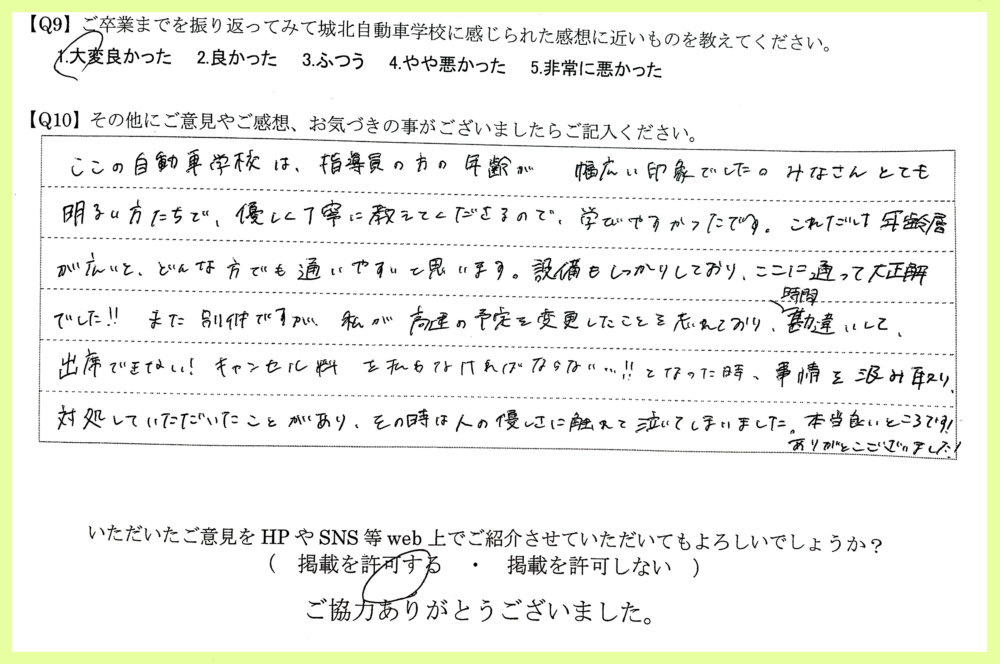 【Q9】ご卒業までを振り返ってみて城北自動車学校に感じられた感想に近いものを教えてください。
1.大変良かった 2.良かった 3.ふつう 4.やや悪かった 5.非常に悪かった
【Q10】その他にご意見やご感想、お気づきの事がございましたらご記入ください。
ここの自動車学校は、指導員の方の年齢が 幅広い印象でした。みなさんとても
明るい方たちで、優しく丁寧に教えてくださるので、学びやすかったです。これだけ年齢層
が広いと、どんな方でも通いやすいと思います。設備もしっかりしており、ここに通って大正解
でした!! また別件ですが、私が高速の予定を変更したことを忘れており、時間勘違いして、
出席できない!キャンセル料を払わなければならない…!!となった時、事情を汲み取り、
対処していただいたことがあり、その時は人の優しさに触れて泣いてしまいました。本当良いところです!
ありがとうございました!
いただいたご意見をHPやSNS等web上でご紹介させていただいてもよろしいでしょうか?
( 掲載を許可する ・ 掲載を許可しない )
ご協力ありがとうございました。